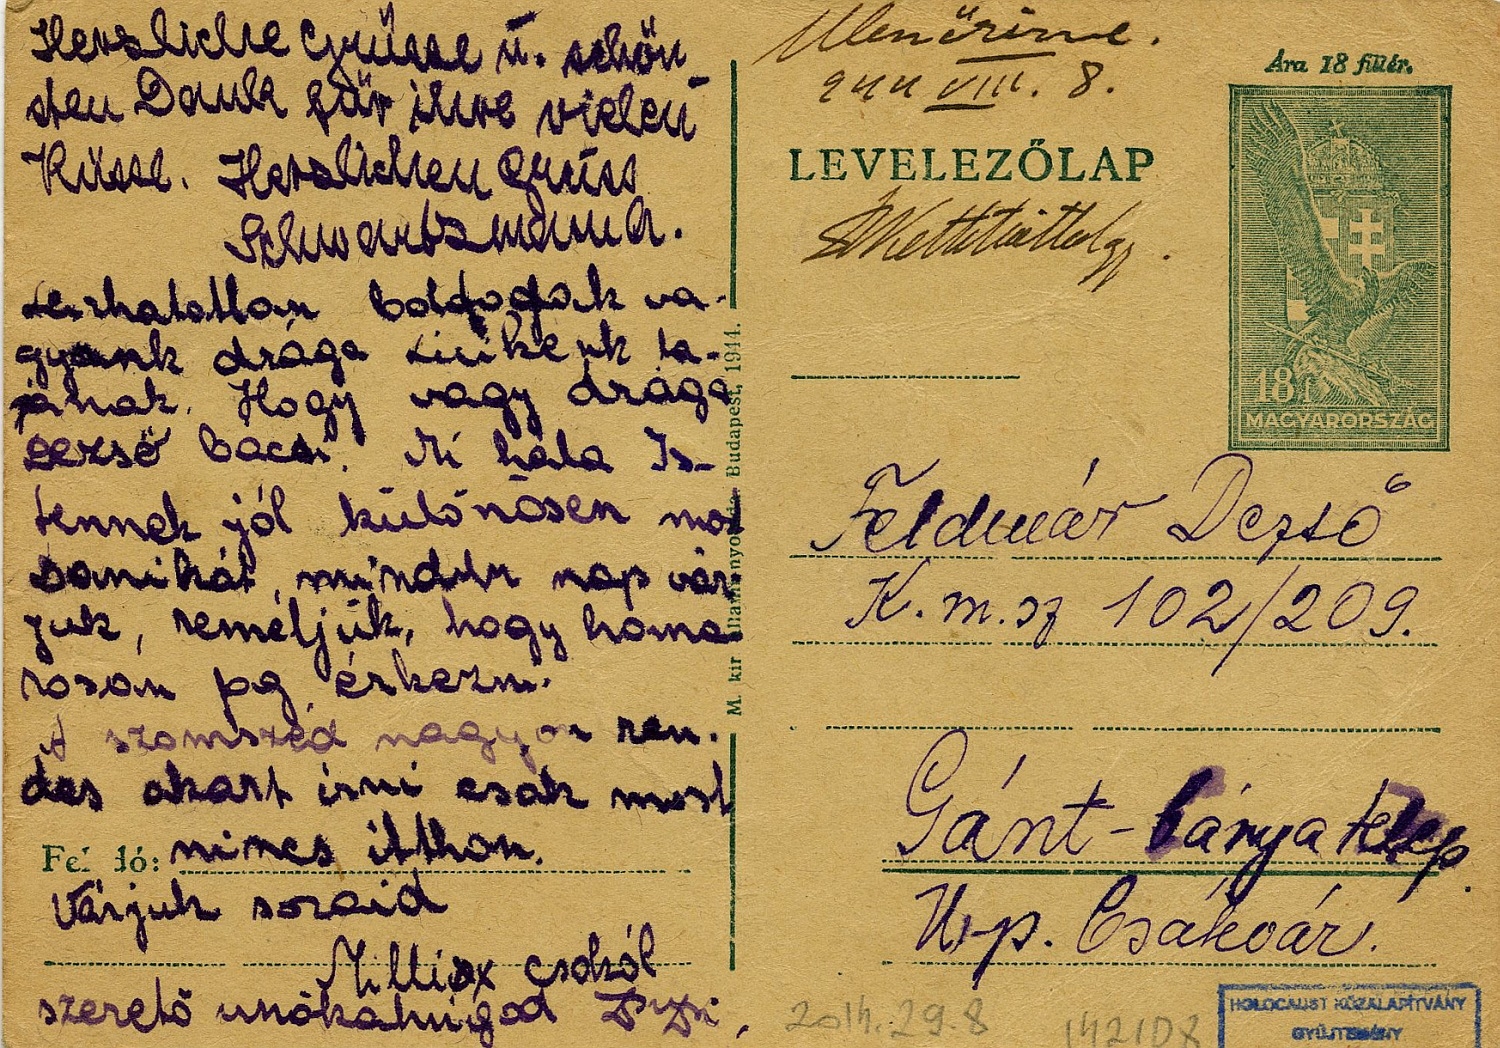 Herzliche Grüsse u. schön
sten Dank für ihre vielen
Küsse. Herzlichen Gruss
Schwartzmama.
Leirhatatlan boldogok va-
gyunk drága Lilikénk ta-
jának. Hogy vagy drága
Dezső bácsi. Mi hála Is-
tennek jól különösen most
Sanikát, minden nap vár-
juk, reméljük, hogy hama-
rosan fog érkezni.
A szomszéd nagyon ren-
des akart irni csak most
nincs itthon.
Feladó:
Várjuk soraid
Milliox csókól
szerető unokahúgod
Ellenőrizve.
944 VIII. 8.
Ára 18 fillér.
LEVELEZŐLAP
18f
MAGYARORSZÁG
M. kir. állami nyomda, Budapest, 1944.
Feldmár Dezső
K. m. sz 102/209.
Gánt-bánya telep.
U.p. Csákvár.
2014.29.8
142108
HOLOCAUST KÖZALAPÍTVÁNY
GYŰJTEMÉNY